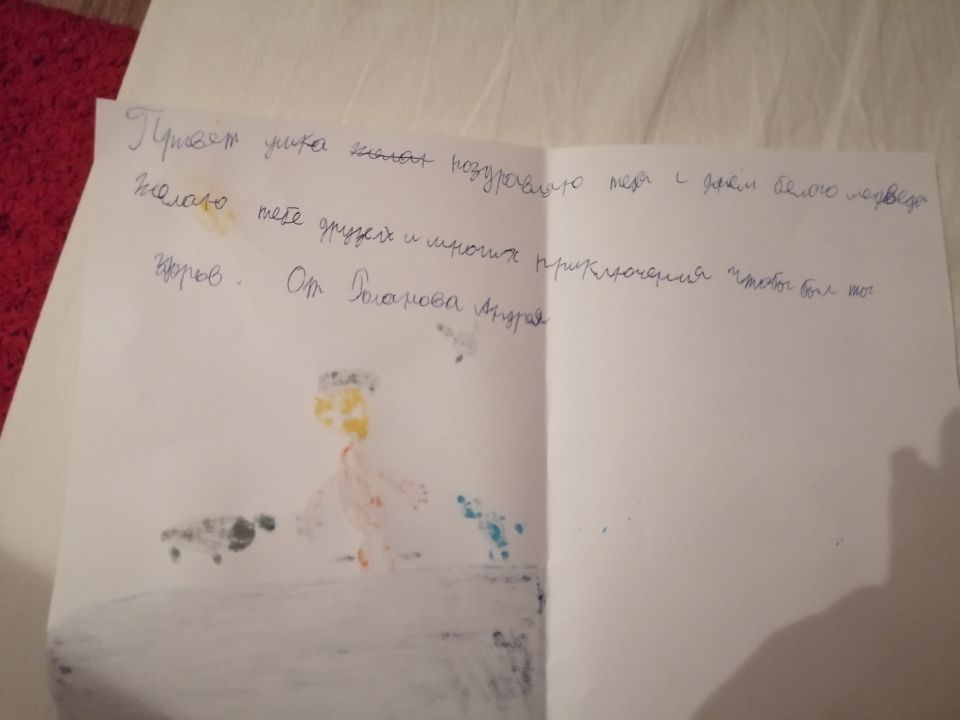 Привет умка желаю поздравляю тебя с днём белого медведя
Желаю тебе друзей и многих приключения чтобы был ты
здоров. От Андрея